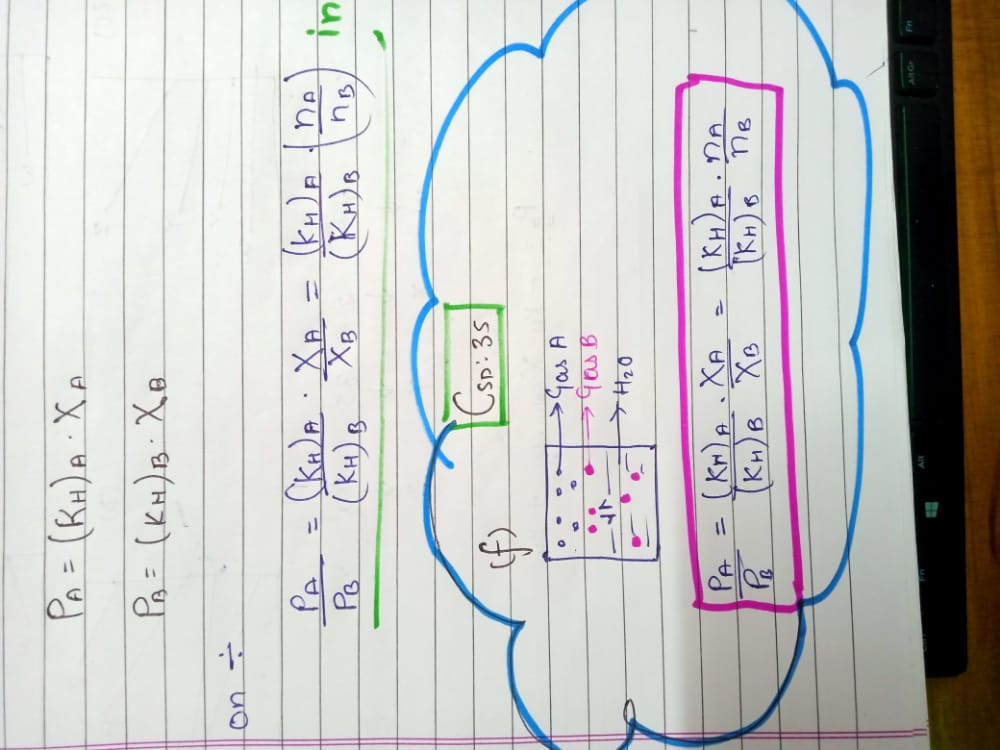 PA = (KH)A · XA
PB = (KH)B · XB
on ÷
PA/PB = (KH)A/(KH)B · XA/XB = (KH)A/(KH)B · (nA/nB) in
Csn: 35
(f)
→ Gas A
→ Gas B
→ H2O
PA/PB = (KH)A/(KH)B · XA/XB = (KH)A/(KH)B · nA/nB
Fn
Alt
Alt Gr
Fn